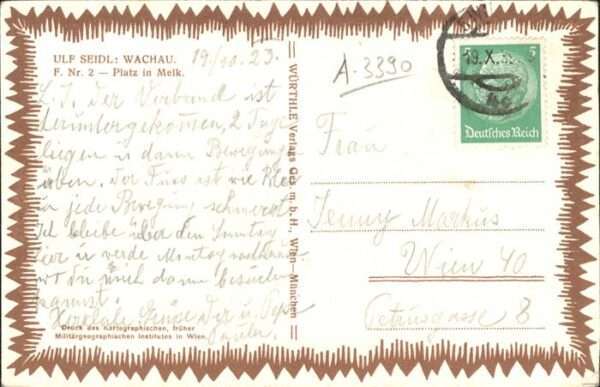 ULF SEIDL: WACHAU.
F. Nr. 2 — Platz in Melk.
L. J. Der Verband ist
heruntergekommen, 2 Tage
liegen u dann Bewegung
üben. Der Fuss ist wie Blei
u jede Bewegung schmerzt
Ich bleibe über den Sonntag
hier u werde Montag
wo du mich dann besuchen
kannst.
Herzliche Grüße Dir u.
Druck des Kartographischen, früher
Militärgeographischen Institutes in Wien.
WÜRTHLE Verlags Ges. m. b. H., Wien—München
A-3390
19.X.
5 5
Deutsches Reich
Frau
Jenny Markus
Wien 40
Petrusgasse 8